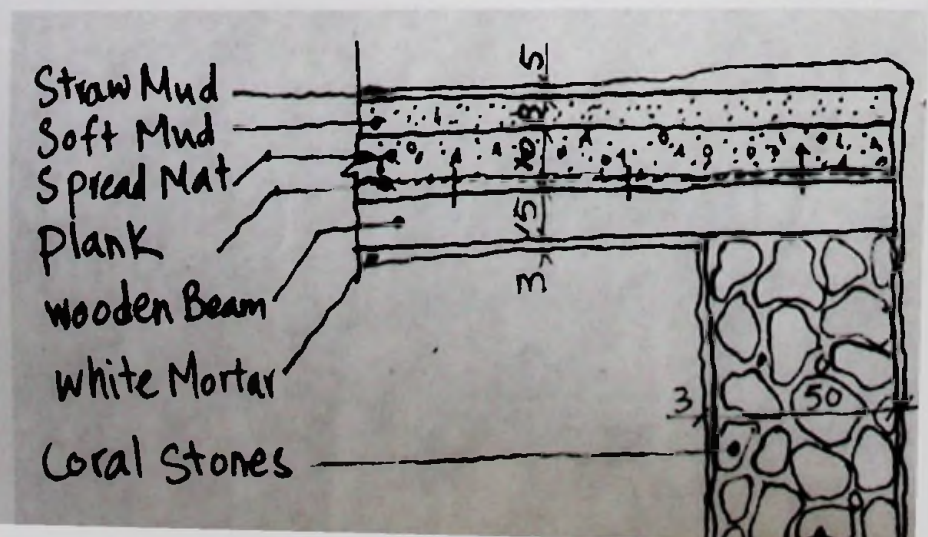 Straw Mud
Soft Mud
Spread Mat
Plank
wooden Beam
white Mortar
Coral Stones
5
15
3
3
50